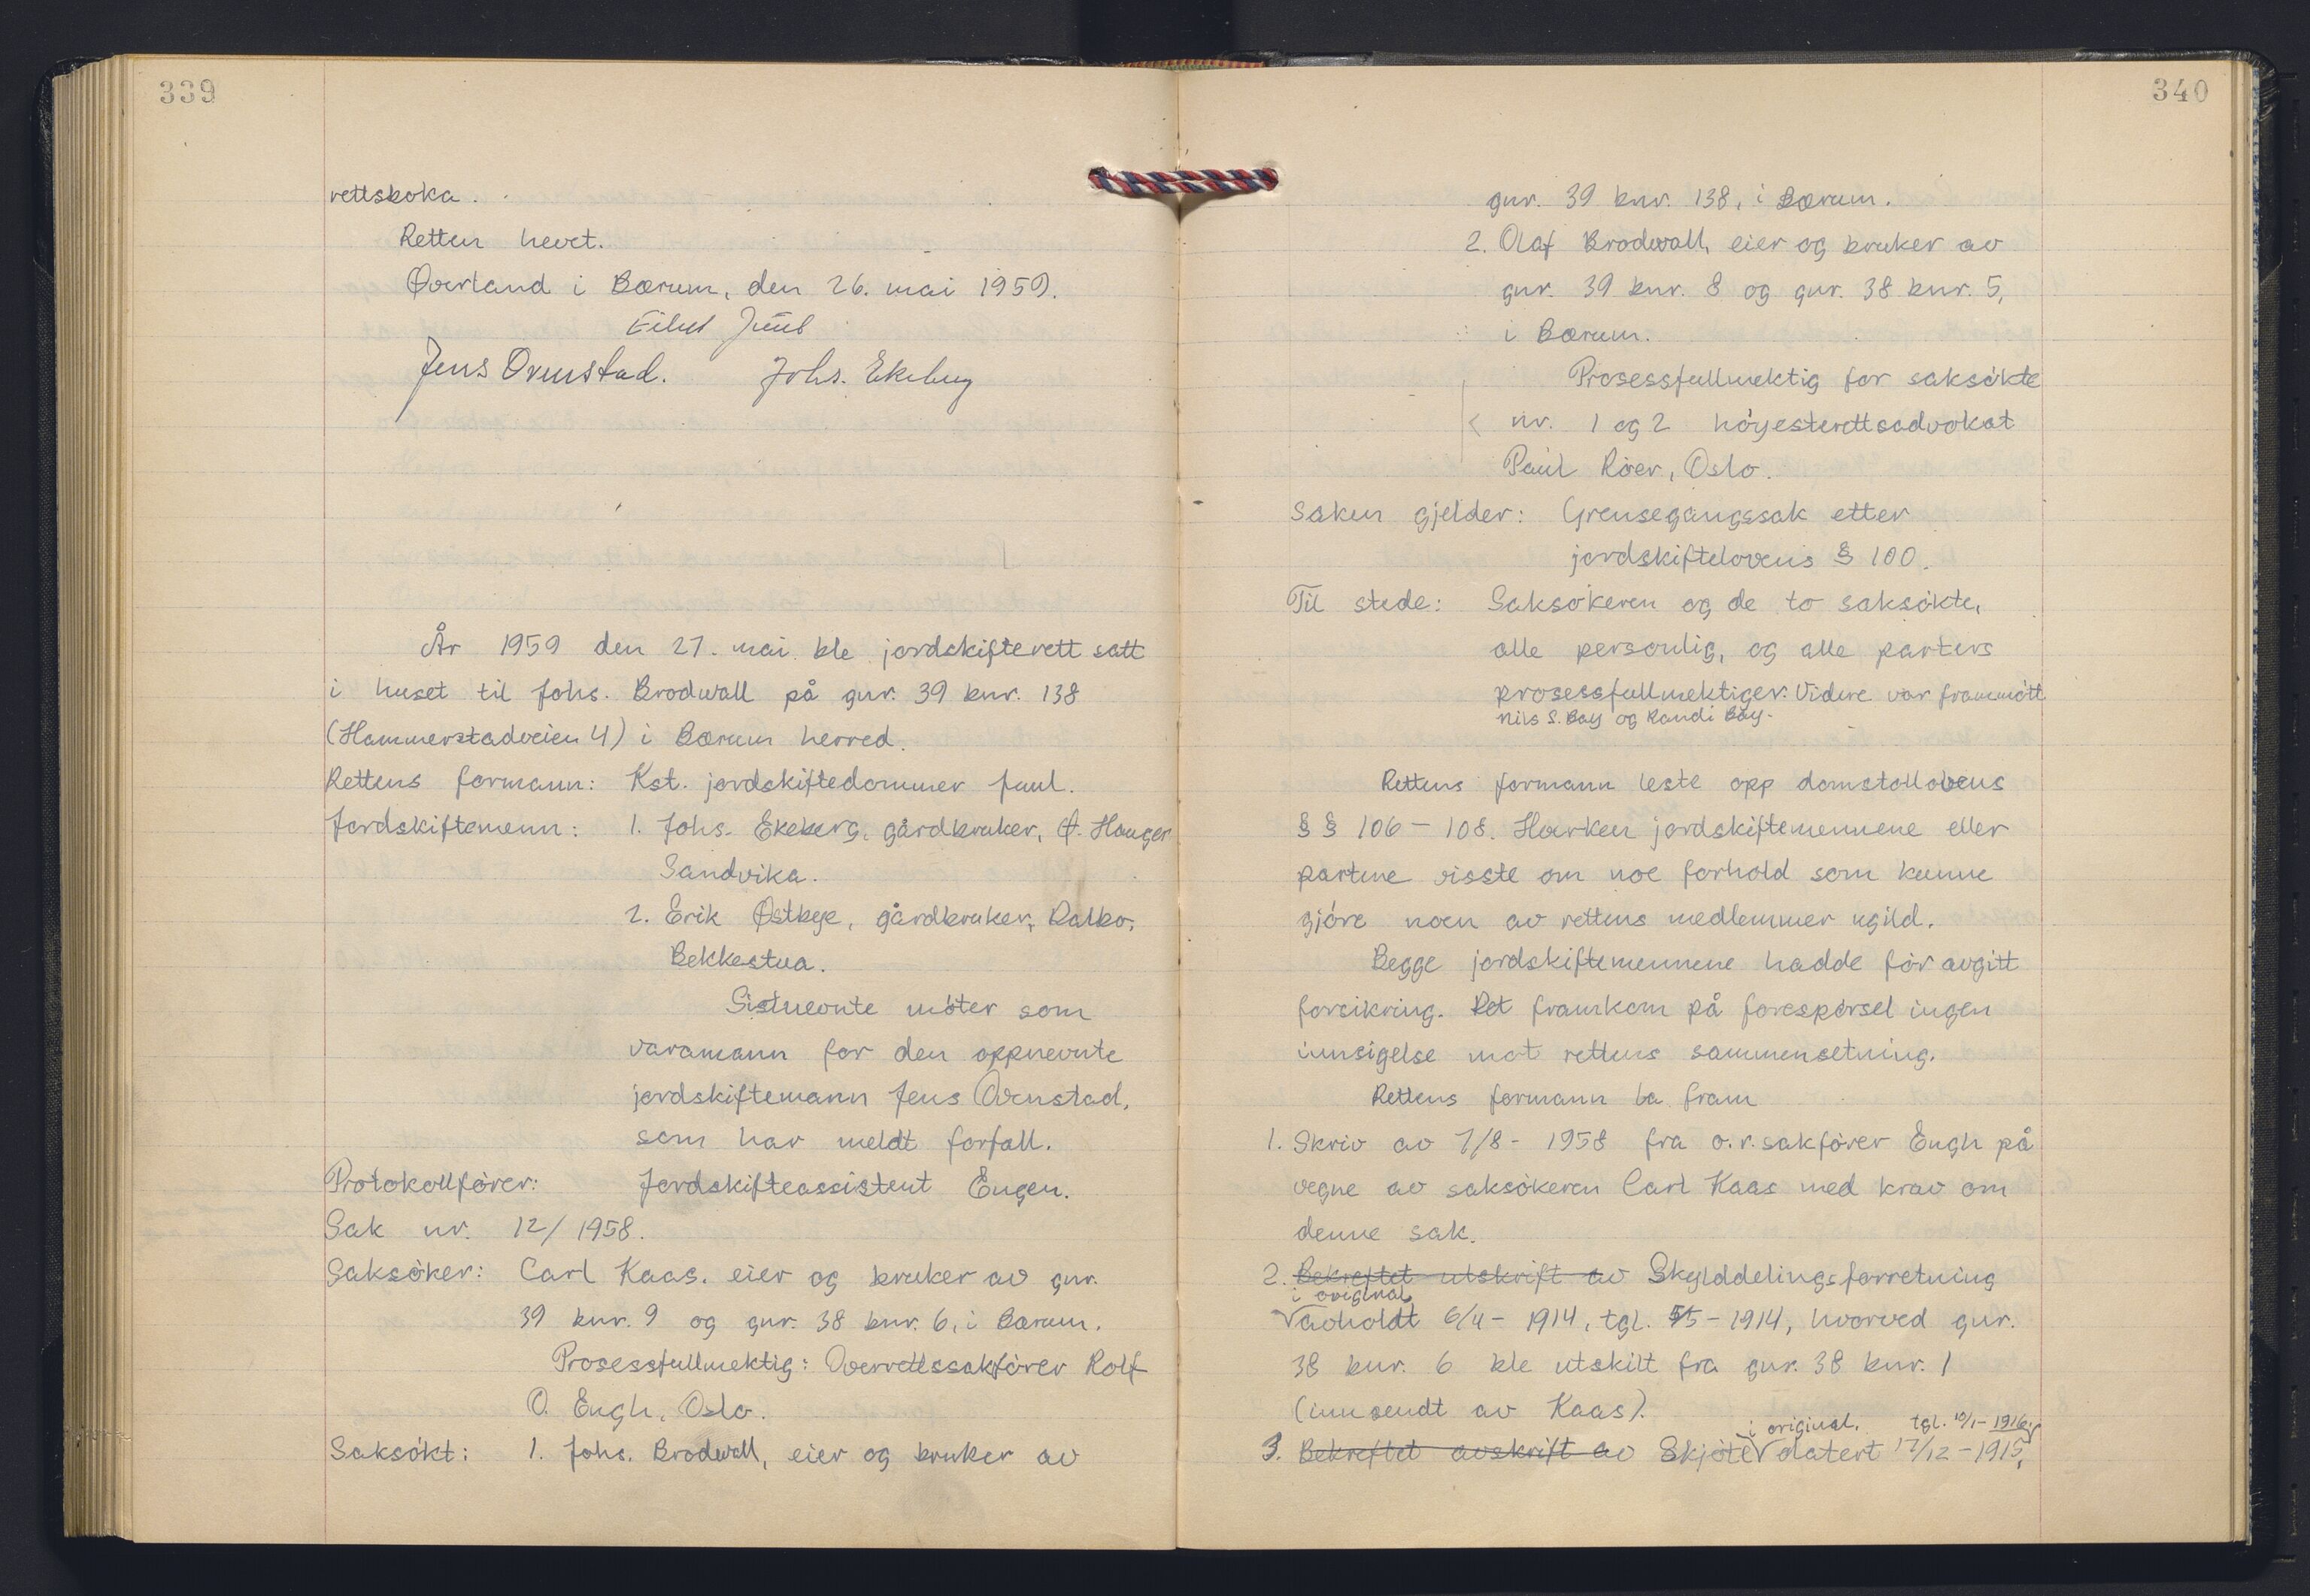 339
rettsboka.
Retten hevet.
Øverland i Bærum, den 26. mai 1959.
Eilif Juul
Jens Ovenstad. Johs. Ekeberg
År 1959 den 27. mai ble jordskifterett satt
i huset til Johs. Brodwall på gnr. 39 bnr. 138
(Hammerstadveien 4) i Bærum herred.
Rettens formann: Kst. jordskiftedommer Juul.
Jordskiftemenn: 1. Johs. Ekeberg, gårdbruker, Hauger
Sandvika.
2. Erik Østbye, gårdbruker, Dalbo,
Bekkestua.
Sistnevnte møter som
varamann for den oppnevnte
jordskiftemann Jens Ovenstad,
som har meldt forfall.
Protokollfører: Jordskifteassistent Engen.
Sak nr. 12/1958.
Saksøker: Carl Kaas, eier og bruker av gnr.
39 bnr. 9 og gnr. 38 bnr. 6, i Bærum.
Prosessfullmektig: Overrettssakfører Rolf
O. Engh, Oslo.
Saksøkt: 1. Johs. Brodwall, eier og bruker av
340
gnr. 39 bnr. 138, i Bærum.
2. Olaf Brodwall, eier og bruker av
gnr. 39 bnr. 8 og gnr. 38 bnr. 5,
i Bærum.
Prosessfullmektig for saksøkte
nr. 1 og 2 høyesterettsadvokat
Paul Röer, Oslo.
Saken gjelder: Grensegangssak etter
jordskiftelovens § 100.
Til stede: Saksøkeren og de to saksøkte,
alle personlig, og alle parters
prosessfullmektiger. Videre var frammøtt
Nils S. Bay og Randi Bay.
Rettens formann leste opp domstollovens
§ § 106 - 108. Hverken jordskiftemennene eller
partene visste om noe forhold som kunne
gjøre noen av rettens medlemmer ugild.
Begge jordskiftemennene hadde før avgitt
forsikring. Det framkom på forespørsel ingen
innsigelse mot rettens sammensetning.
Rettens formann la fram
1. Skriv av 7/8 - 1958 fra o.r.sakfører Engh på
vegne av saksøkeren Carl Kaas med krav om
denne sak.
2. Bekreftet utskrift av Skylddelingsforretning
i original
avholdt 6/4 - 1914, tgl. 5/5 - 1914, hvorved gnr.
38 bnr. 6 ble utskilt fra gnr. 38 bnr. 1
(innsendt av Kaas).
i original. tgl. 10/1 - 1916,
3. Bekreftet avskrift av Skjøte datert 17/12 - 1915,